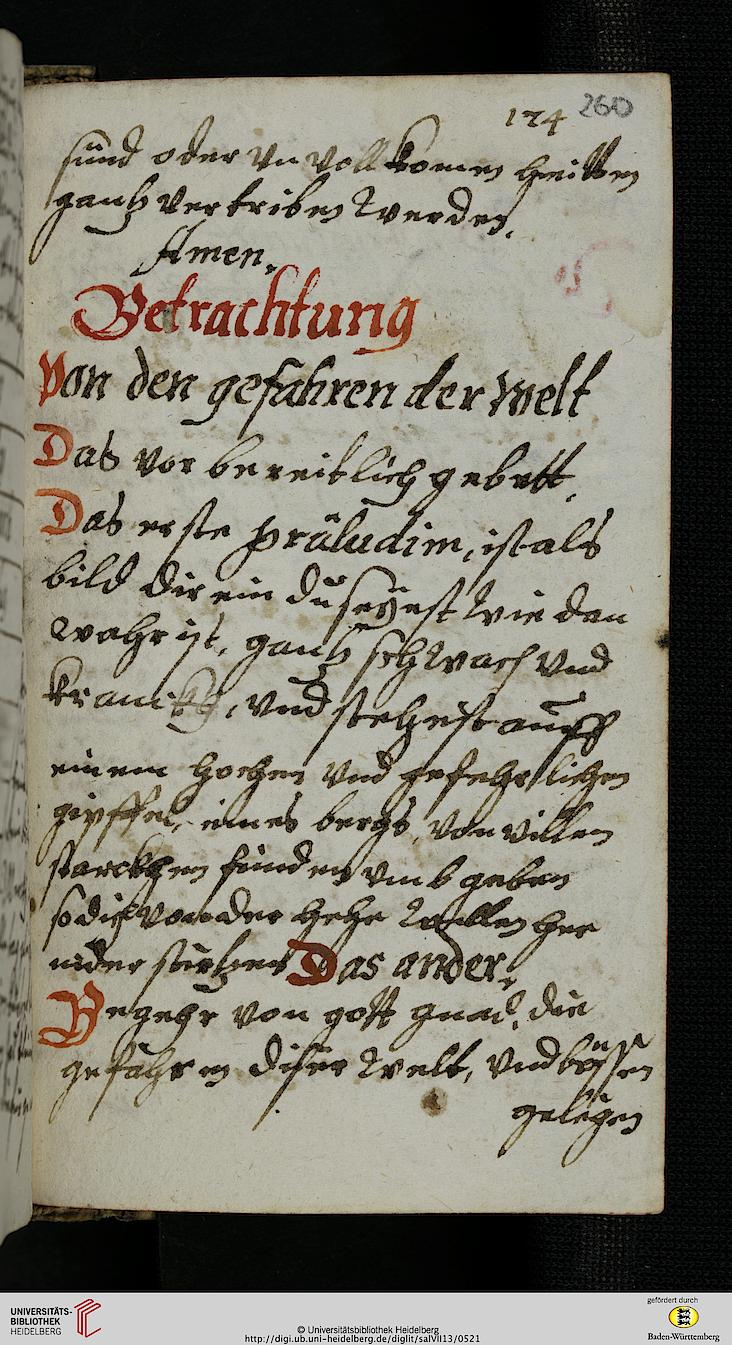 174 260
sünd oder un voll komen heitten
gantz vertriben werden.
Amen.
Betrachtung
Von den gefahren der Welt
Das vor bereitlich gebett.
Das erste präludim, ist als
bild dir ein du seÿest wie dan
wahr ist, gantz schwach und
kranckh, und stehest auff
einem hochen und gefehrlichen
gipffel, eines bergs, von villen
starckhen feinden umb geben
so dich von der hehe wellen her
nider stürtzen Das ander.
Begehr von gott gnad, die
gefahren diser welt, und bössen
gelegen
UNIVERSITÄTS-
BIBLIOTHEK
HEIDELBERG
© Universitätsbibliothek Heidelberg
http://digi.ub.uni-heidelberg.de/diglit/salVII13/0521
gefördert durch
Baden-Württemberg